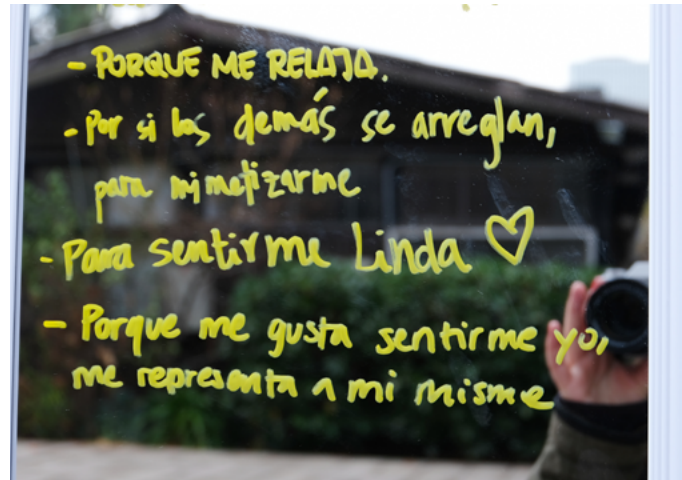 - PORQUE ME RELAJA.
- Por si los demás se arreglan,
para mimetizarme
- Para sentirme Linda ♡
- Porque me gusta sentirme yo,
me representa a mi misme